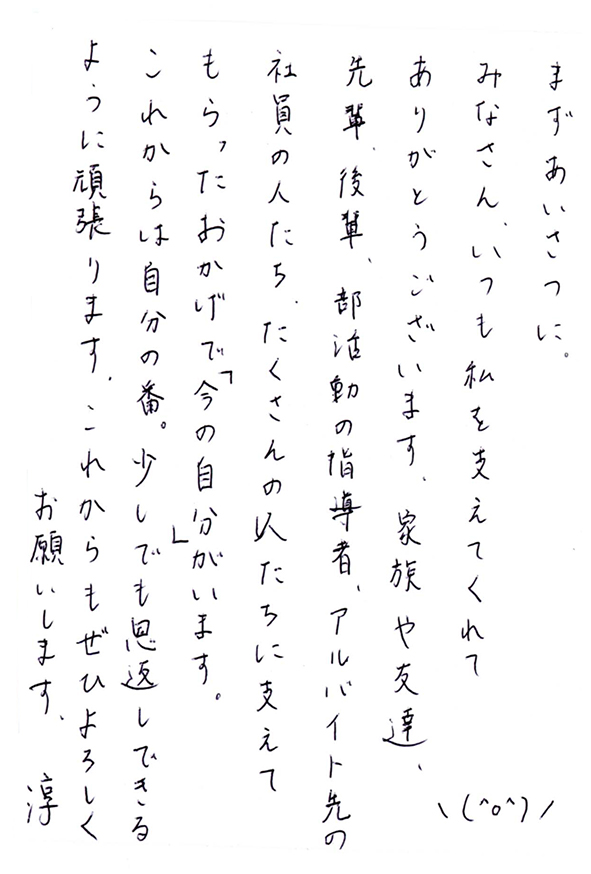 まずあいさつに。
みなさん、いつも私を支えてくれて
ありがとうございます、家族や友達、
先輩、後輩、部活動の指導者、アルバイト先の
社員の人たち、たくさんの人たちに支えて
もらったおかげで「今の自分」がいます。
これからは自分の番。少しでも恩返しできる
ように頑張ります、これからもぜひよろしく
お願いします、
淳
\(^o^)/